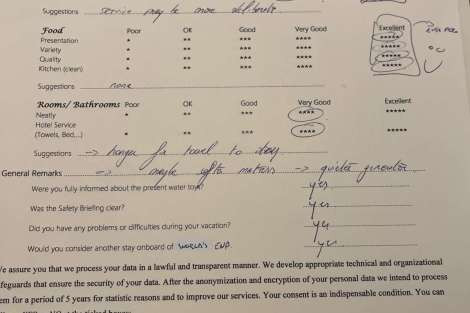 Suggestions service may be more
Food Poor OK Good Very Good Excellent
Presentation * ** *** **** *****
Variety * ** *** **** *****
Quality * ** *** **** *****
Kitchen (clean) * ** *** **** *****
Suggestions none
Rooms/ Bathrooms Poor OK Good Very Good Excellent
Neatly * ** *** **** *****
Hotel Service
(Towels, Bed,...) * ** *** **** *****
Suggestions -> hanger for towel to dry
General Remarks -> maybe softer matress -> quieter generator
Were you fully informed about the present water toys? yes
Was the Safety Briefing clear? yes
Did you have any problems or difficulties during your vacation? yes
Would you consider another stay onboard of WORLD'S END. yes
We assure you that we process your data in a lawful and transparent manner. We develop appropriate technical and organizational
safeguards that ensure the security of your data. After the anonymization and encryption of your personal data we intend to process
em for a period of 5 years for statistic reasons and to improve our services. Your consent is an indispensable condition. You can